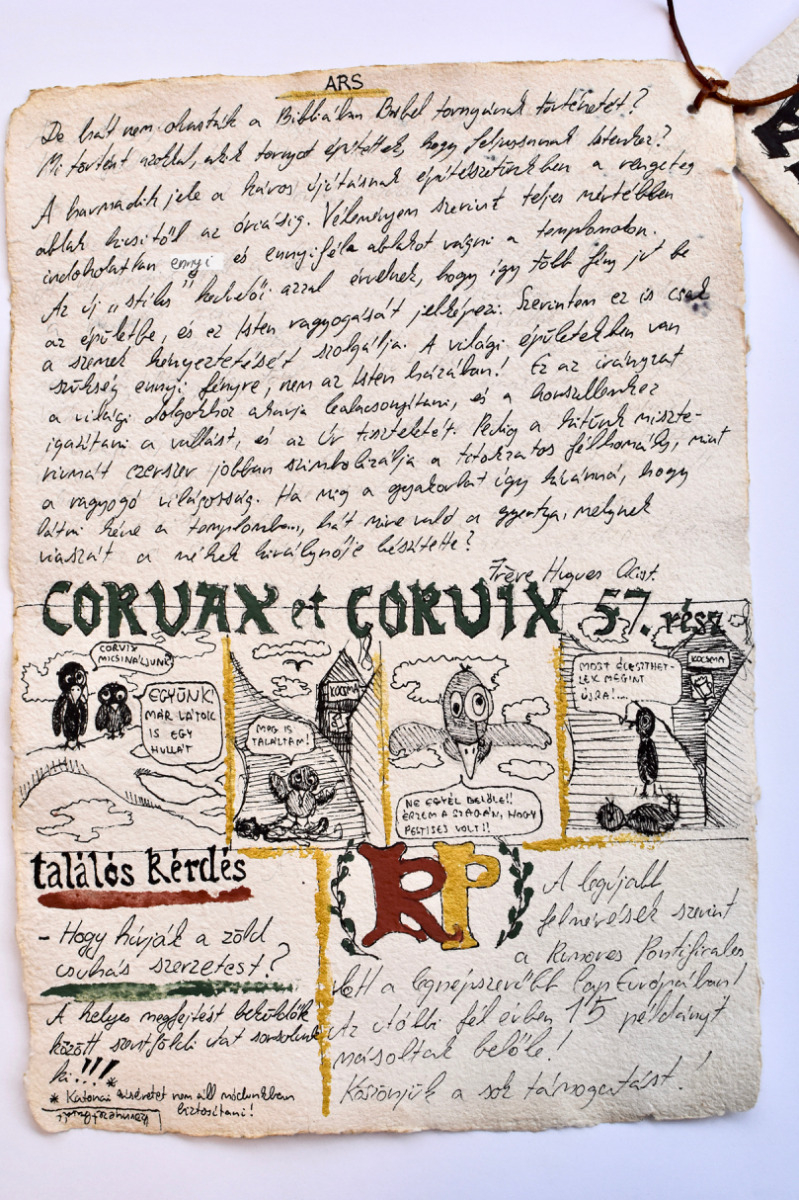 ARS
De hát nem olvasták a Bibliában Bábel tornyának történetét?
Mi történt azokkal, akik tornyot építettek, hogy feljussanak Istenhez?
A harmadik jele a káros újításnak építészetünkben a rengeteg
ablak kicsitől az óriásig. Véleményem szerint teljes mértékben
indokolatlan ennyi és ennyiféle ablakot vágni a templomokon.
Az új „stílus” kedvelői azzal érvelnek, hogy így több fény jut be
az épületbe, és ez Isten ragyogását jelképezi. Szerintem ez is csak
a szemek kényeztetését szolgálja. A világi épületekben van
szükség ennyi fényre, nem az Isten házában! Ez az irányzat
a világi dolgokhoz akarja lealacsonyítani, és a korszellemhez
igazítani a vallást, és az Úr tiszteletét. Pedig a hitünk miszté-
riumát ezerszer jobban szimbolizálja a titokzatos félhomály, mint
a ragyogó világosság. Ha még a gyakorlat így kívánná, hogy
látni kéne a templomban, hát mire való a gyertya, melynek
viaszát a méhek királynője készítette?
Frère Hugues Cist.
CORVAX et CORVIX 57. rész
CORVIX MICSINÁLJUNK
EGYÜNK!
MÁR LÁTOK
IS EGY
HULLÁT
KOCSMA
MEG IS
TALÁLTAM!
NE EGYÉL BELŐLE!!
ÉRZEM A SZAGÁN, HOGY
PESTISES VOLT!!
MOST ÉLESZTHET-
LEK MEGINT
ÚJRA!...
KOCSMA
találós kérdés
- Hogy hívják a zöld
csuhás szerzetest?
A helyes megfejtést beküldők
között szentföldi utat sorsolunk
ki!!!*
* Katonai kíséretet nem áll módunkban
biztosítani!
RP
A legújabb
felmérések szerint
a Rumores Pontificales
volt a legnépszerűbb lap Európában!
Az utóbbi fél évben 15 példányt
másoltak belőle!
Köszönjük a sok támogatást!